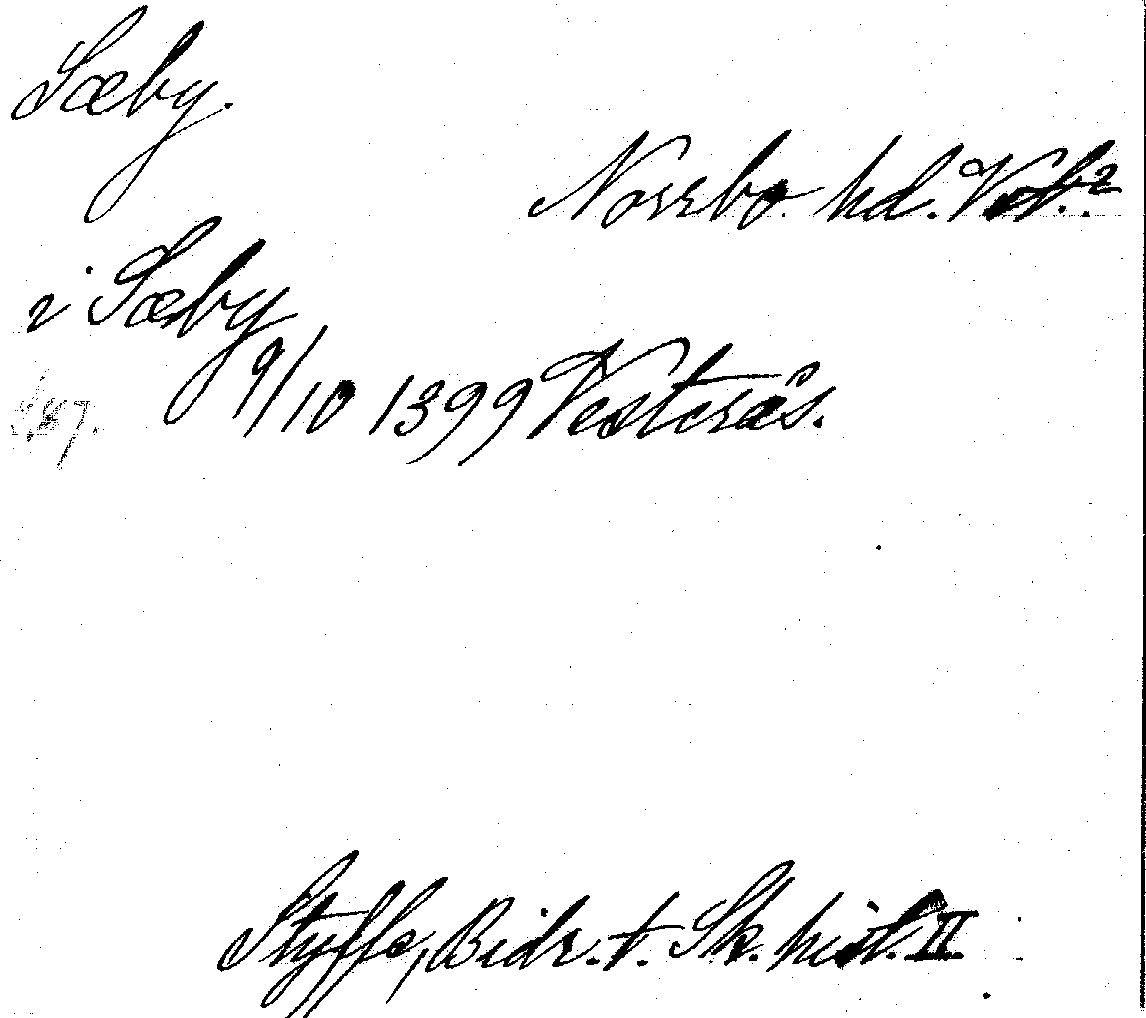 Sæby.
Norrbo hd. Vstm.?
i Sæby
9/10 1399 Vesterås.
S. 87.
Styffe, Bidr. t. Sk. hist. II